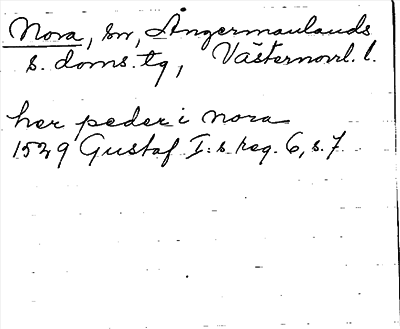 Nora, sn, Ångermanlands
s. doms.tg, Västernorrl. l.
her peder i nora
1529 Gustaf I:s reg. 6, s. 7